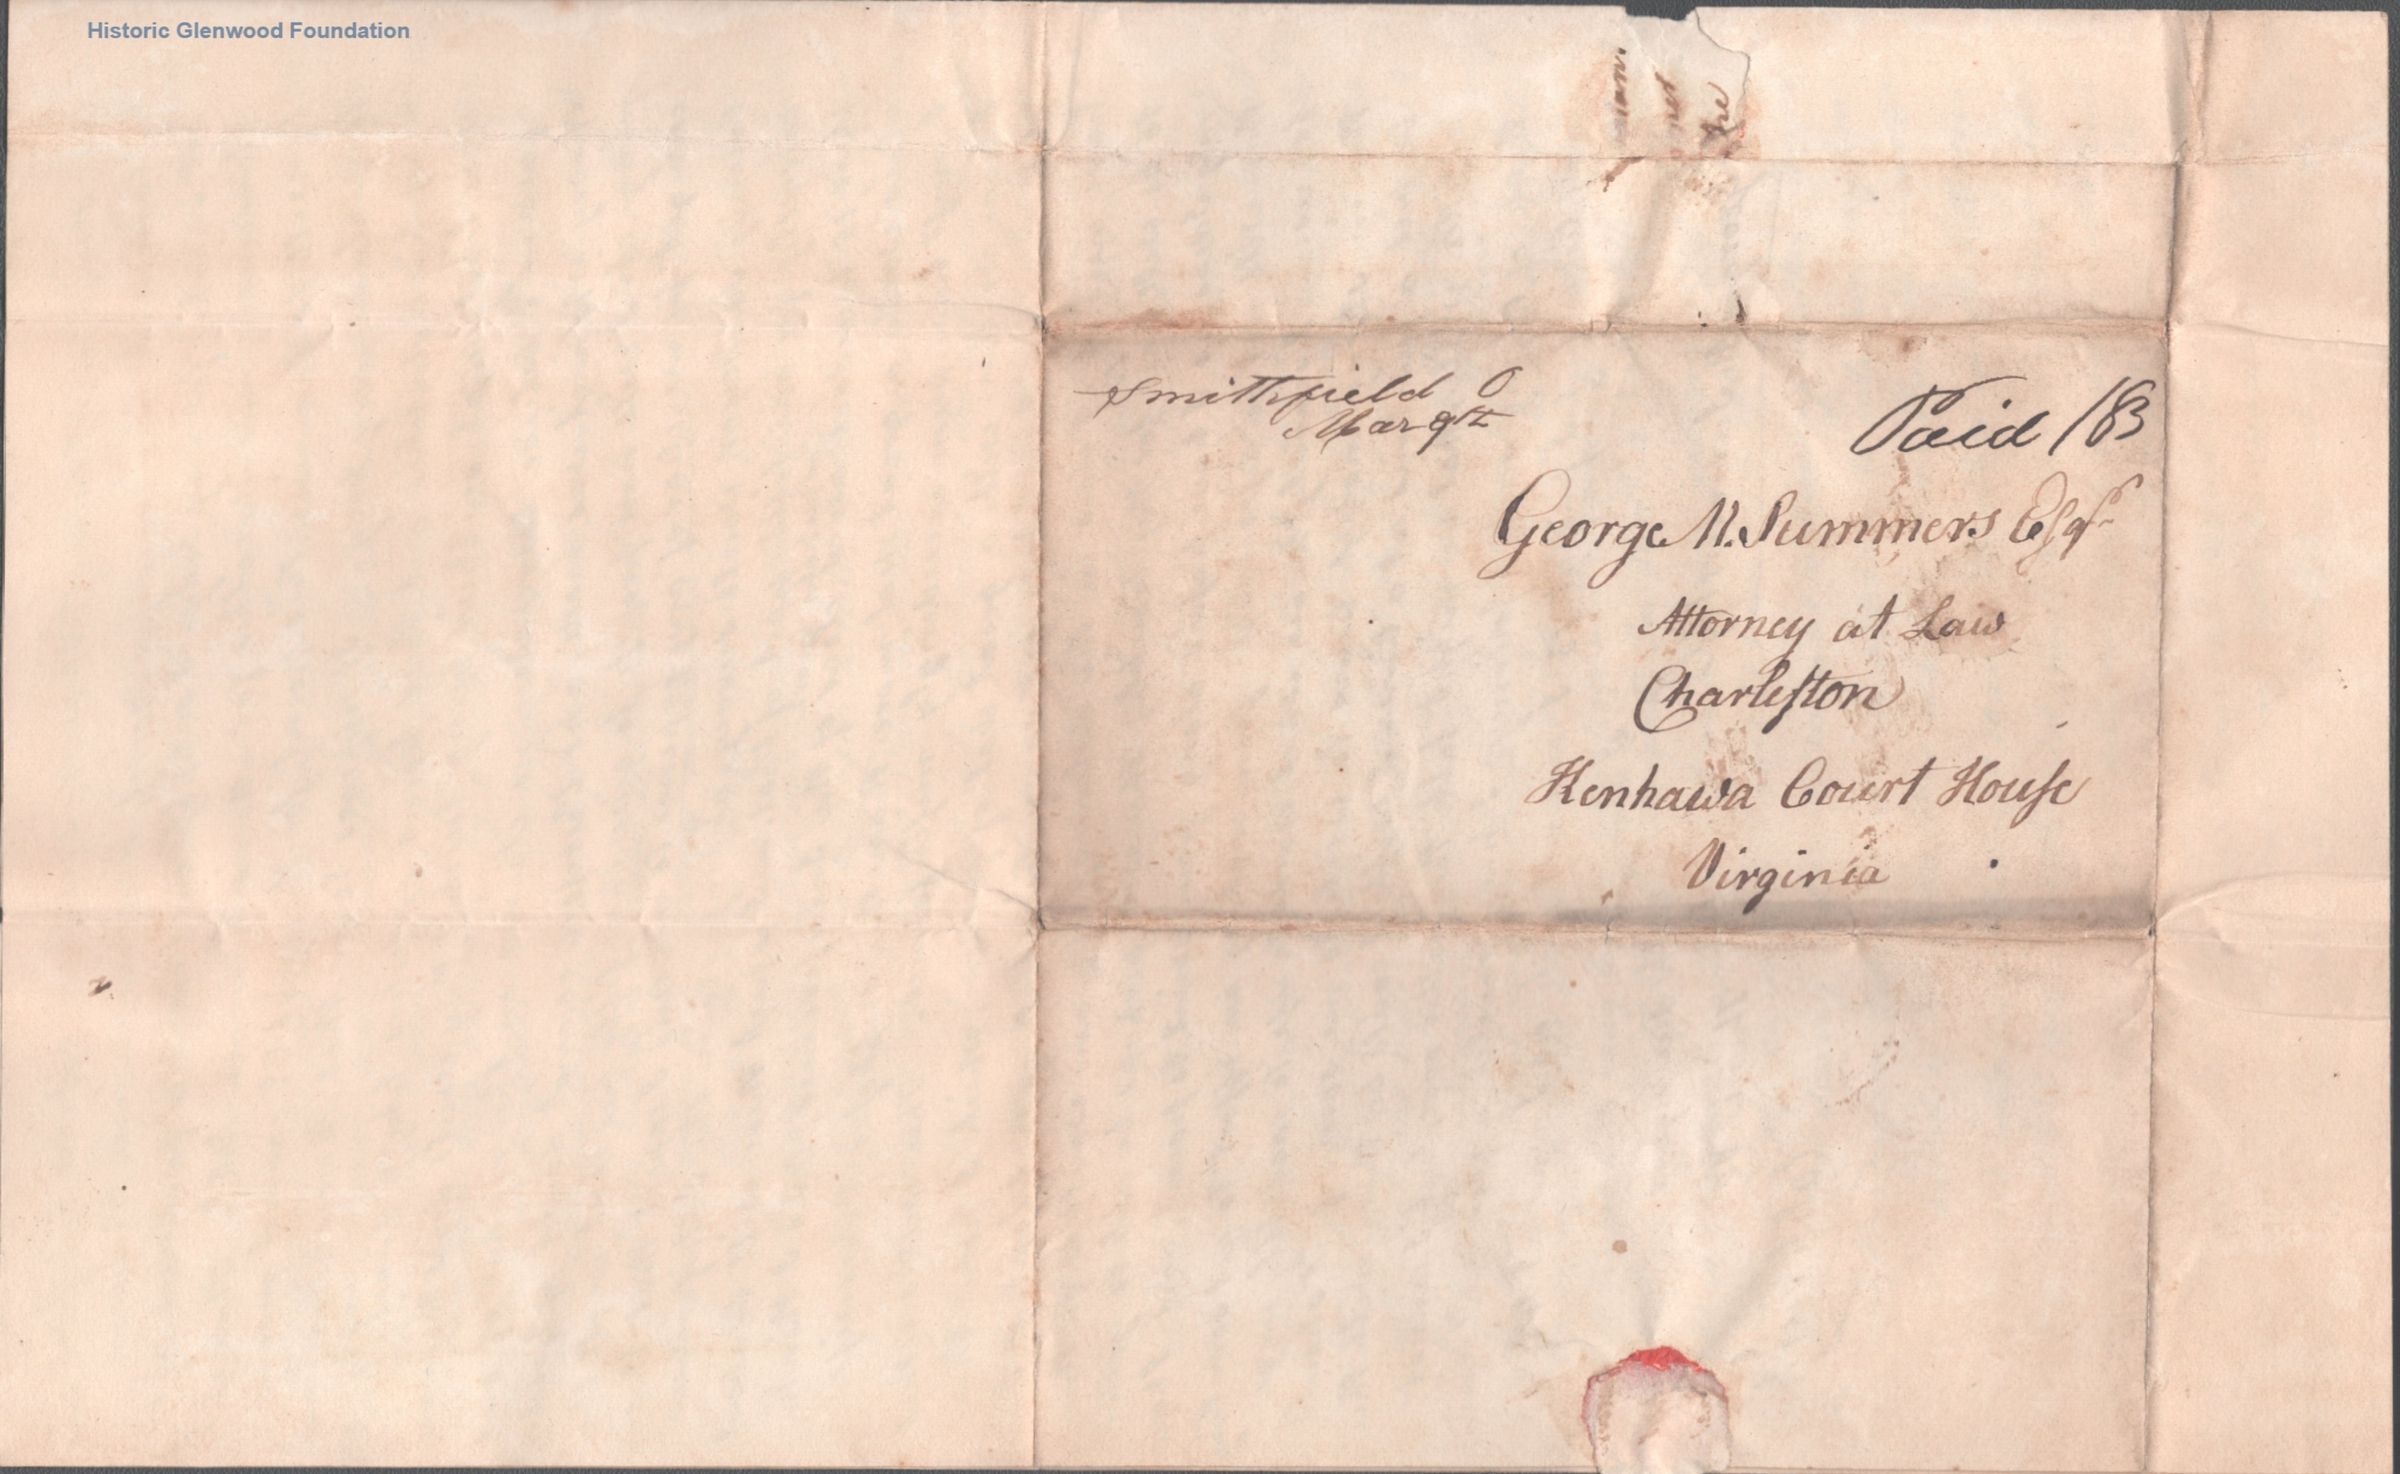 Historic Glenwood Foundation
Smithfield O
Mar 9th
Paid 18
George W. Summers Esqr
Attorney at Law
Charleston
Kenhawa Court House
Virginia